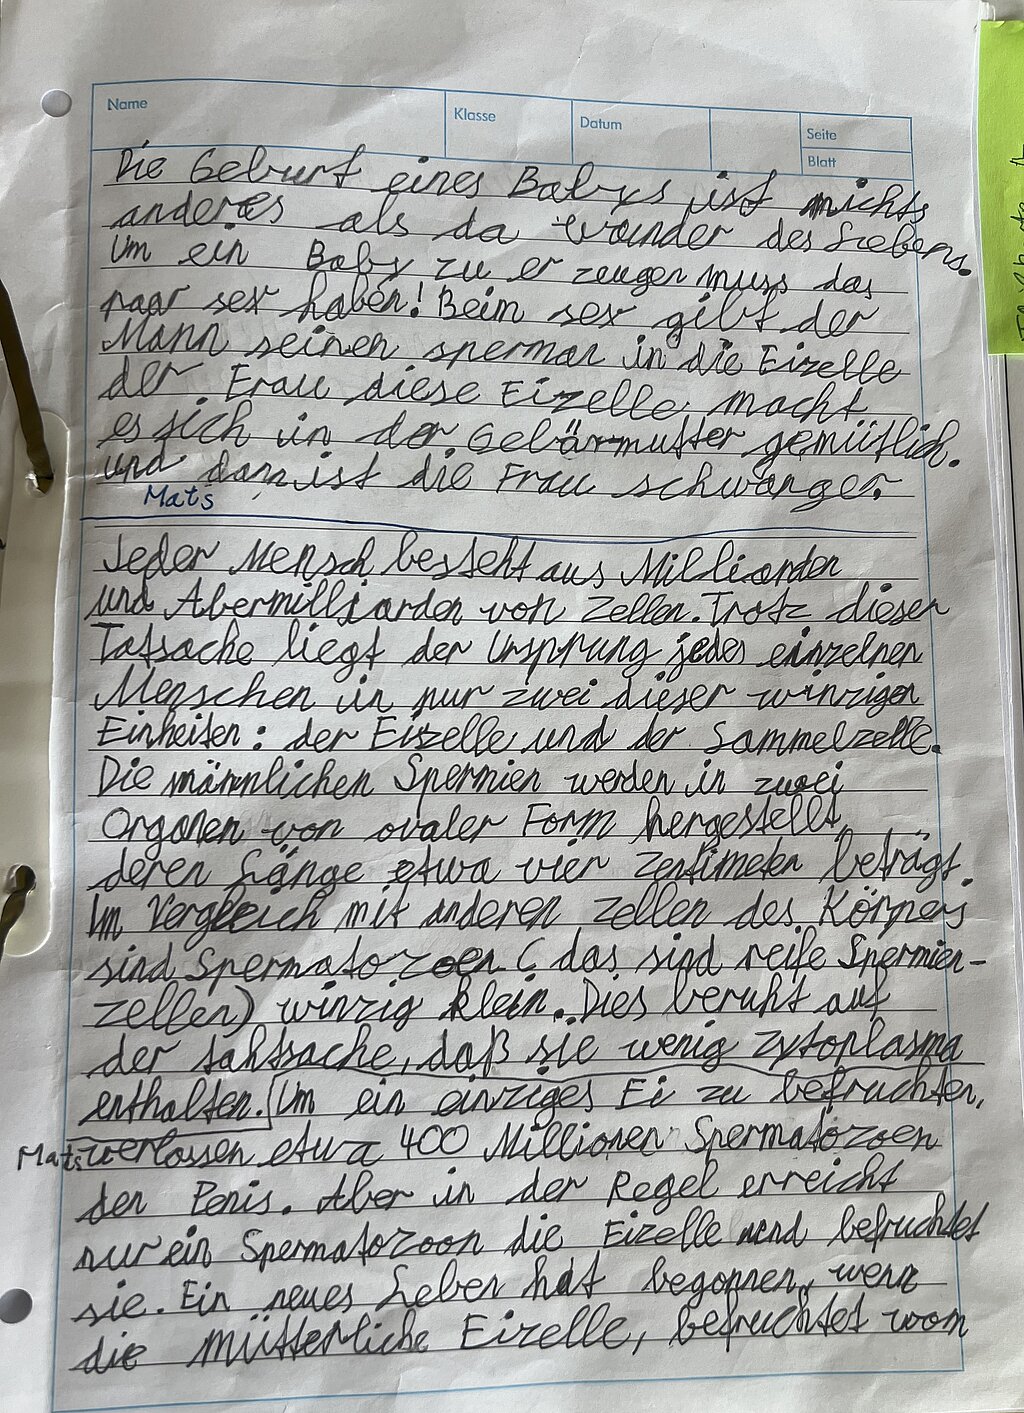 Name
Klasse
Datum
Seite
Blatt
Die Geburt eines Babys ist nichts
anderes als da wunder des Lebens.
Um ein Baby zu er zeugen muss das
paar sex haben! Beim sex gibt der
Mann seinen sperman in die Eizelle
der Frau diese Eizelle macht
es sich in der Gebärmutter gemütlich.
und dann ist die Frau schwanger.
Mats
Jeder Mensch besteht aus Milliarden
und Abermilliarden von Zellen. Trotz dieser
Tatsache liegt der Ursprung jedes einzelnen
Menschen in nur zwei dieser winzigen
Einheiten: der Eizelle und der Sammelzelle.
Die männlichen Spermien werden in zwei
Organen von ovaler Form hergestellt,
deren Länge etwa vier zentimeten beträgt.
Im Vergleich mit anderen Zellen des Körpers
sind Spermatozoen (das sind reife Spermien-
zellen) winzig klein. Dies beruht auf
der tahtsache, daß sie wenig zytoplasma
enthalten. Um ein einziges Ei zu befruchten,
Mats verlassen etwa 400 Millionen Spermatozoen
den Penis. Aber in der Regel erreicht
nur ein Spermatozoon die Eizelle und befruchtet
sie. Ein neues Leben hat begonnen, wenn
die Mütterliche Eizelle, befruchtet vom